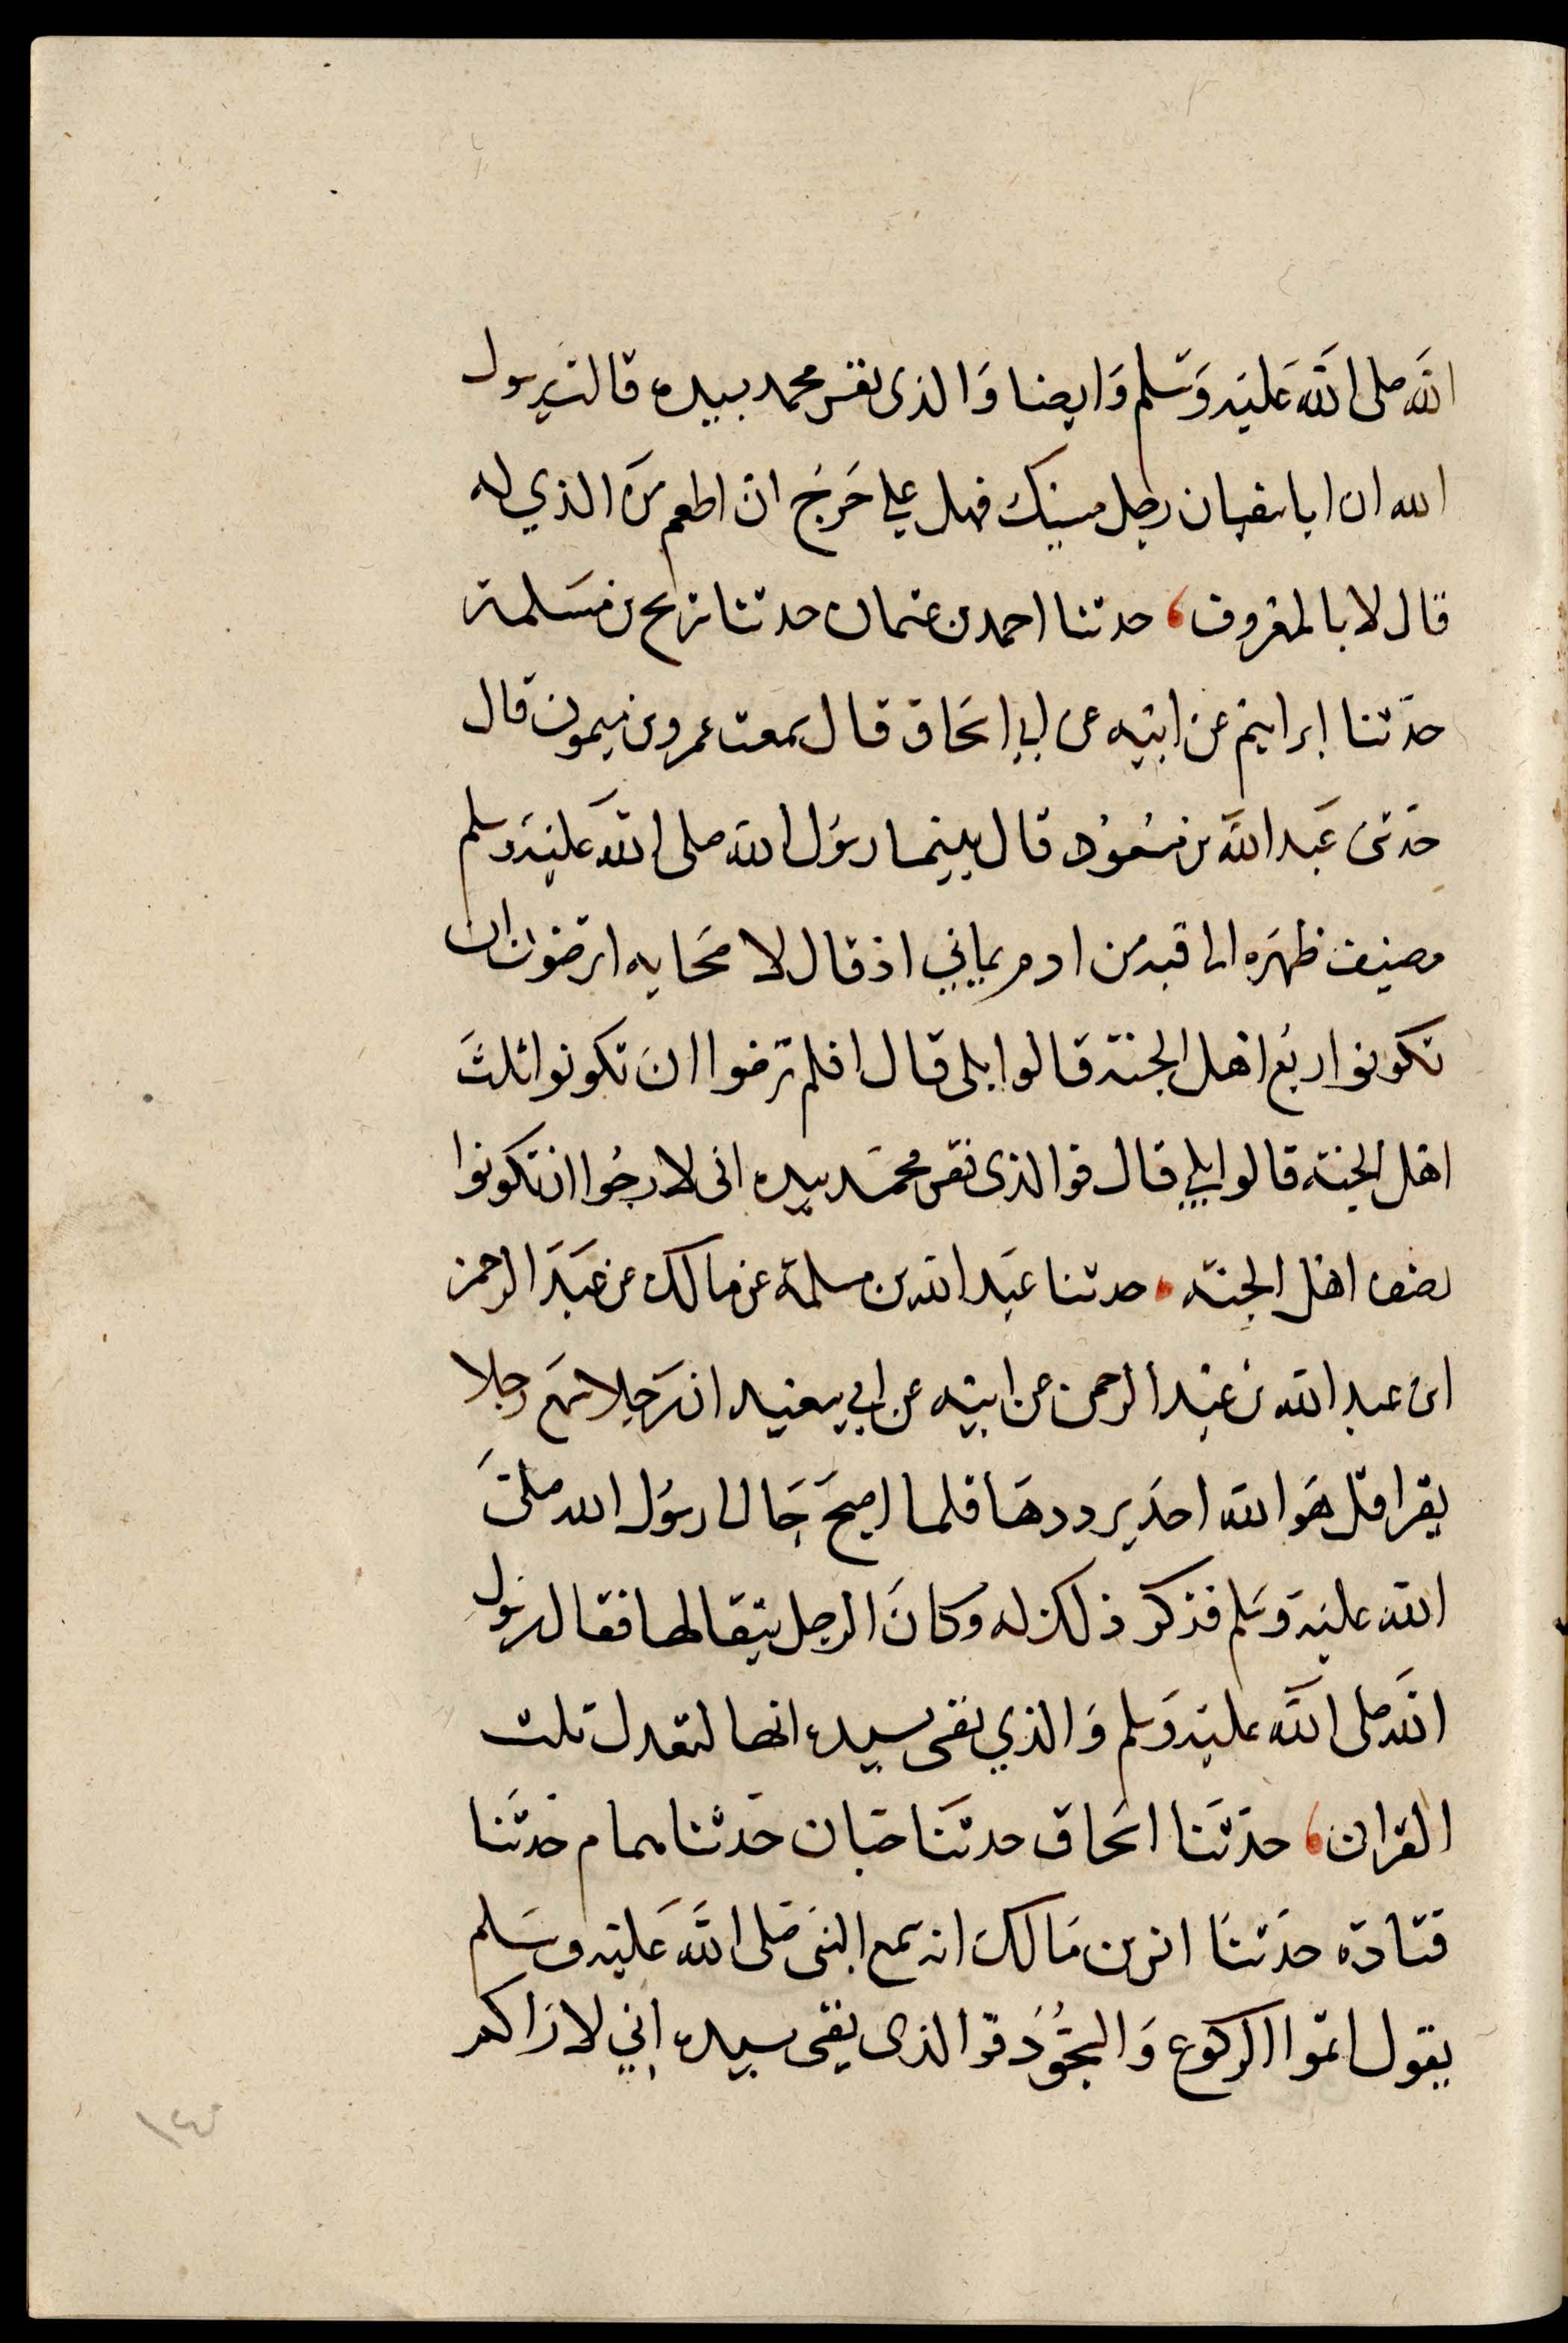 الله صلى الله عليه وسلم وايضا والذى نفس محمد بيده قالت يرسول
الله ان ابا سفيان رجل مسيك فهل علي حرج ان اطعم من الذي له
قال لا بالمعروف، حدثنا احمد بن عثمان حدثنا شريح بن مسلمة
حدثنا ابراهيم عن ابيه عن ابي اسحاق قال سمعت عمرو بن ميمون قال
حدثنى عبد الله بن مسعود قال بينما رسول الله صلى الله عليه وسلم
مضيف ظهره الى قبة من ادم يماني اذ قال لاصحابه اترضون ان
تكونوا ربع اهل الجنة قالوا بلى قال افلم ترضوا ان تكونوا ثلث
اهل الجنة قالوا بلي قال فوالذى نفس محمد بيده انى لارجوا ان تكونوا
نصف اهل الجنة، حدثنا عبد الله بن مسلمة عن مالك عن عبد الرحمن
ابن عبد الله بن عبد الرحمن عن ابيه عن ابي سعيد ان رجلا سمع رجلا
يقرا قل هو الله احد يرددها فلما اصبح جا الى رسول الله صلى
الله عليه وسلم فذكر ذلك له وكان الرجل يتقالها فقال رسول
الله صلى الله عليه وسلم والذي نفسى بيده انها لتعدل ثلث
القران، حدثنا اسحاق حدثنا حبان حدثنا همام حدثنا
قتادة حدثنا انس بن مالك انه سمع النبى صلى الله عليه وسلم
يقول اتموا الركوع والسجود فوالذى نفسى بيده اني لاراكم